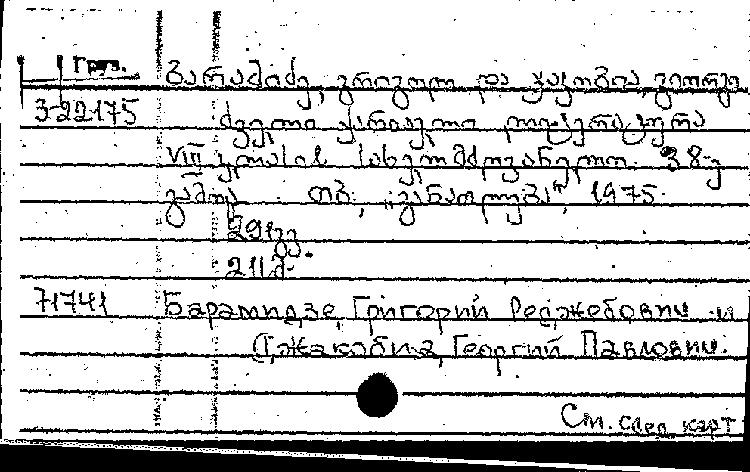 Груз.
ბარამიძე, გრიგოლ და ჯაკობია, გიორგი
3-22175
ძველი ქართული ლიტერატურა
VIII კლასის სახელმძღვანელო. 38-ე
გამოც. თბ., „განათლება“, 1975.
291გვ.
211მ.
71741 Барамидзе, Григорий Реджебович и
Джакобиа, Георгий Павлович.
См. след карт